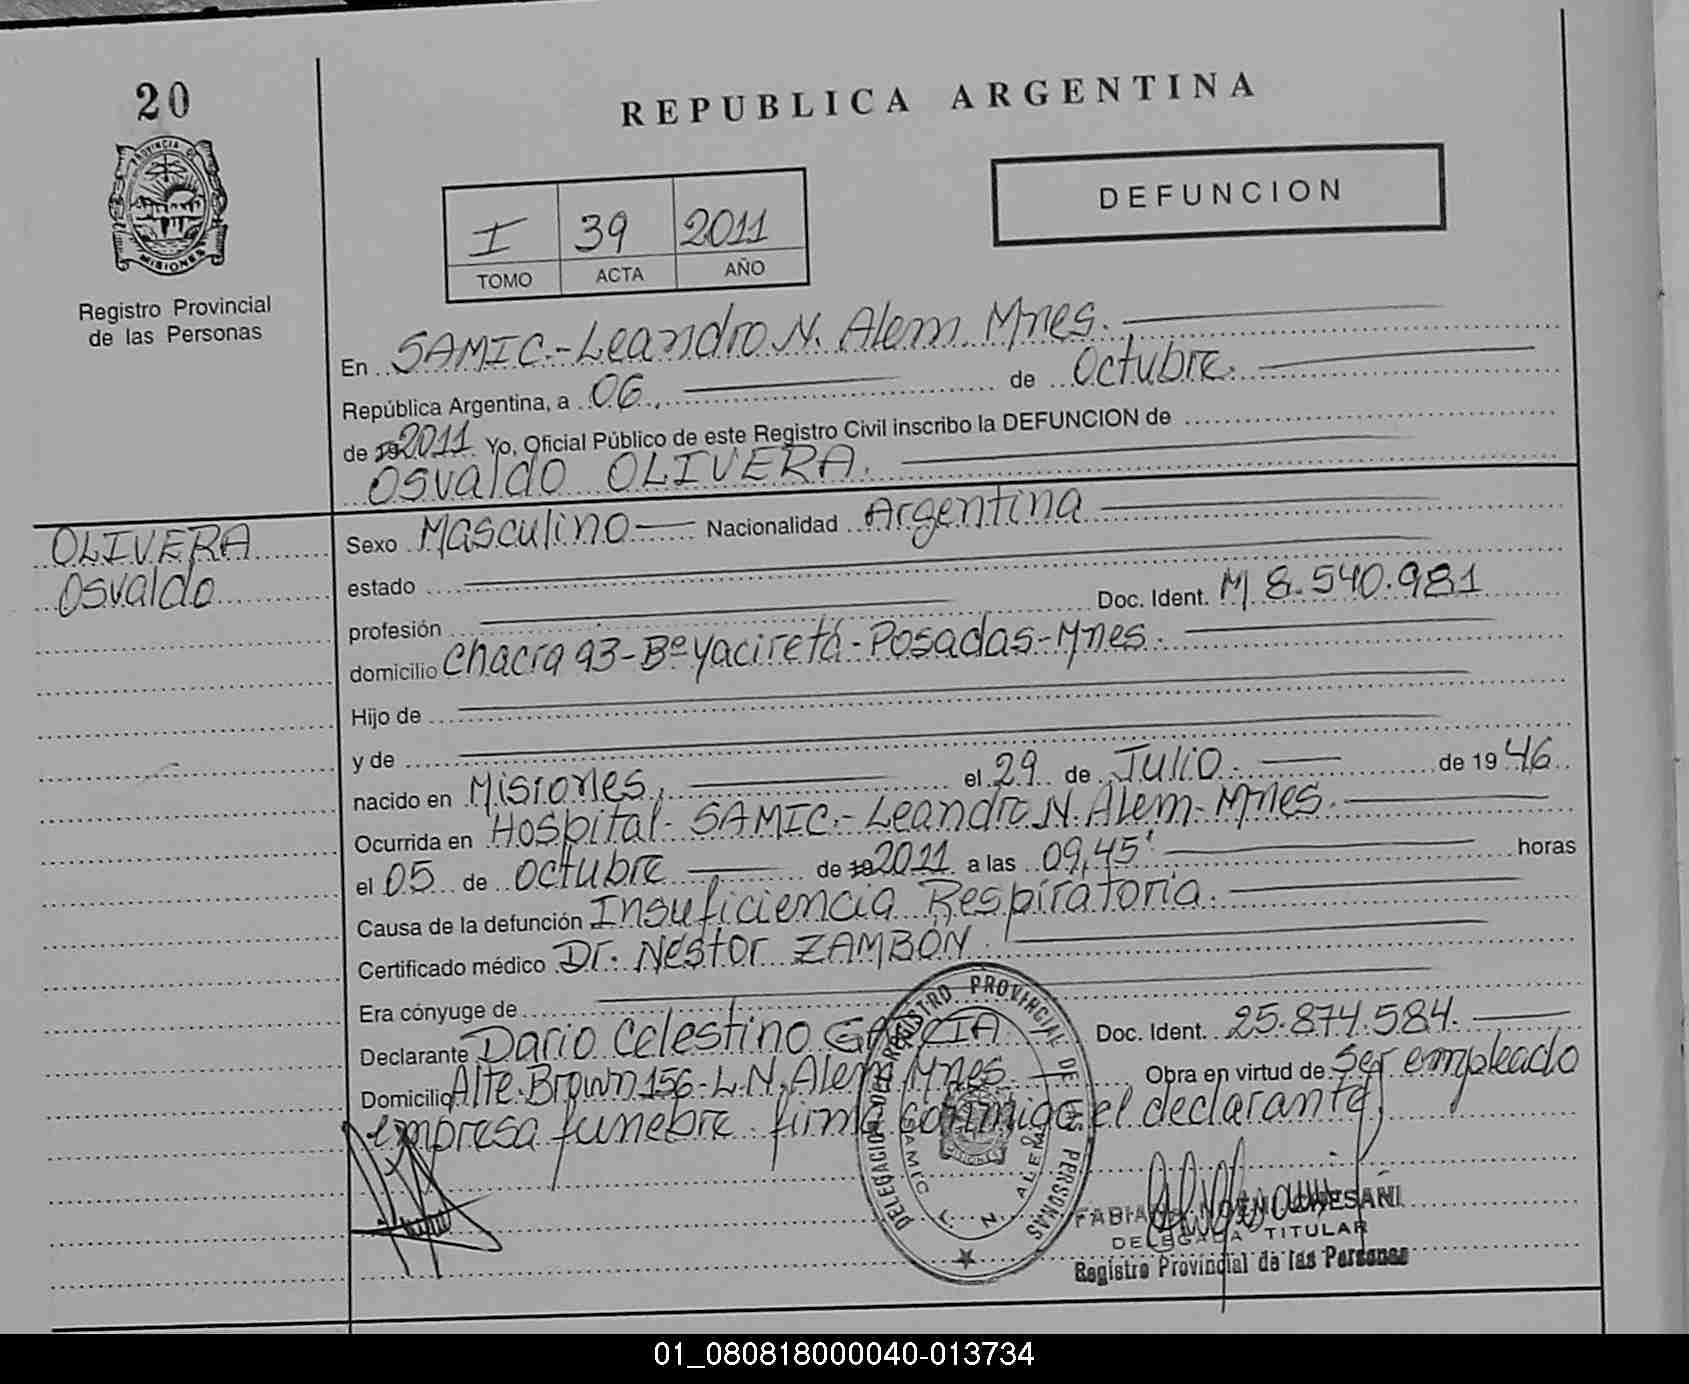 20
PROVINCIA DE
MISIONES
Registro Provincial
de las Personas
REPUBLICA ARGENTINA
I 39 2011
TOMO ACTA AÑO
DEFUNCION
En SAMIC.-Leandro N. Alem. Mnes.
República Argentina, a 06, de Octubre.
de 19 2011. Yo, Oficial Público de este Registro Civil inscribo la DEFUNCION de
Osvaldo OLIVERA.
OLIVERA
Osvaldo
Sexo Masculino Nacionalidad Argentina
estado
profesión Doc. Ident. M 8.540.981
domicilio Chacra 93-Bº Yacireta-Posadas-Mnes.
Hijo de
y de
nacido en Misiones, el 29 de Julio. de 19 46.
Ocurrida en Hospital-SAMIC.-Leandro N. Alem-Mnes.
el 05 de octubre de 19 2011 a las 09,45' horas
Causa de la defunción Insuficiencia Respiratoria.
Certificado médico Dr. Nestor ZAMBON.
Era cónyuge de
Declarante Dario Celestino GARCIA Doc. Ident. 25.874.584.
Domicilio Alte. Brown 156-L.N. Alem Mnes Obra en virtud de ser empleado
empresa funebre. firma conmigo el declarante,
DELEGACION DEL REGISTRO PROVINCIAL DE LAS PERSONAS
SAMIC L. N. ALEM
MISIONES
DELEGADA TITULAR
Registro Provincial de las Personas
01_080818000040-013734